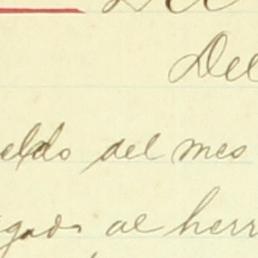 Del
eldo del mes
gado al herr